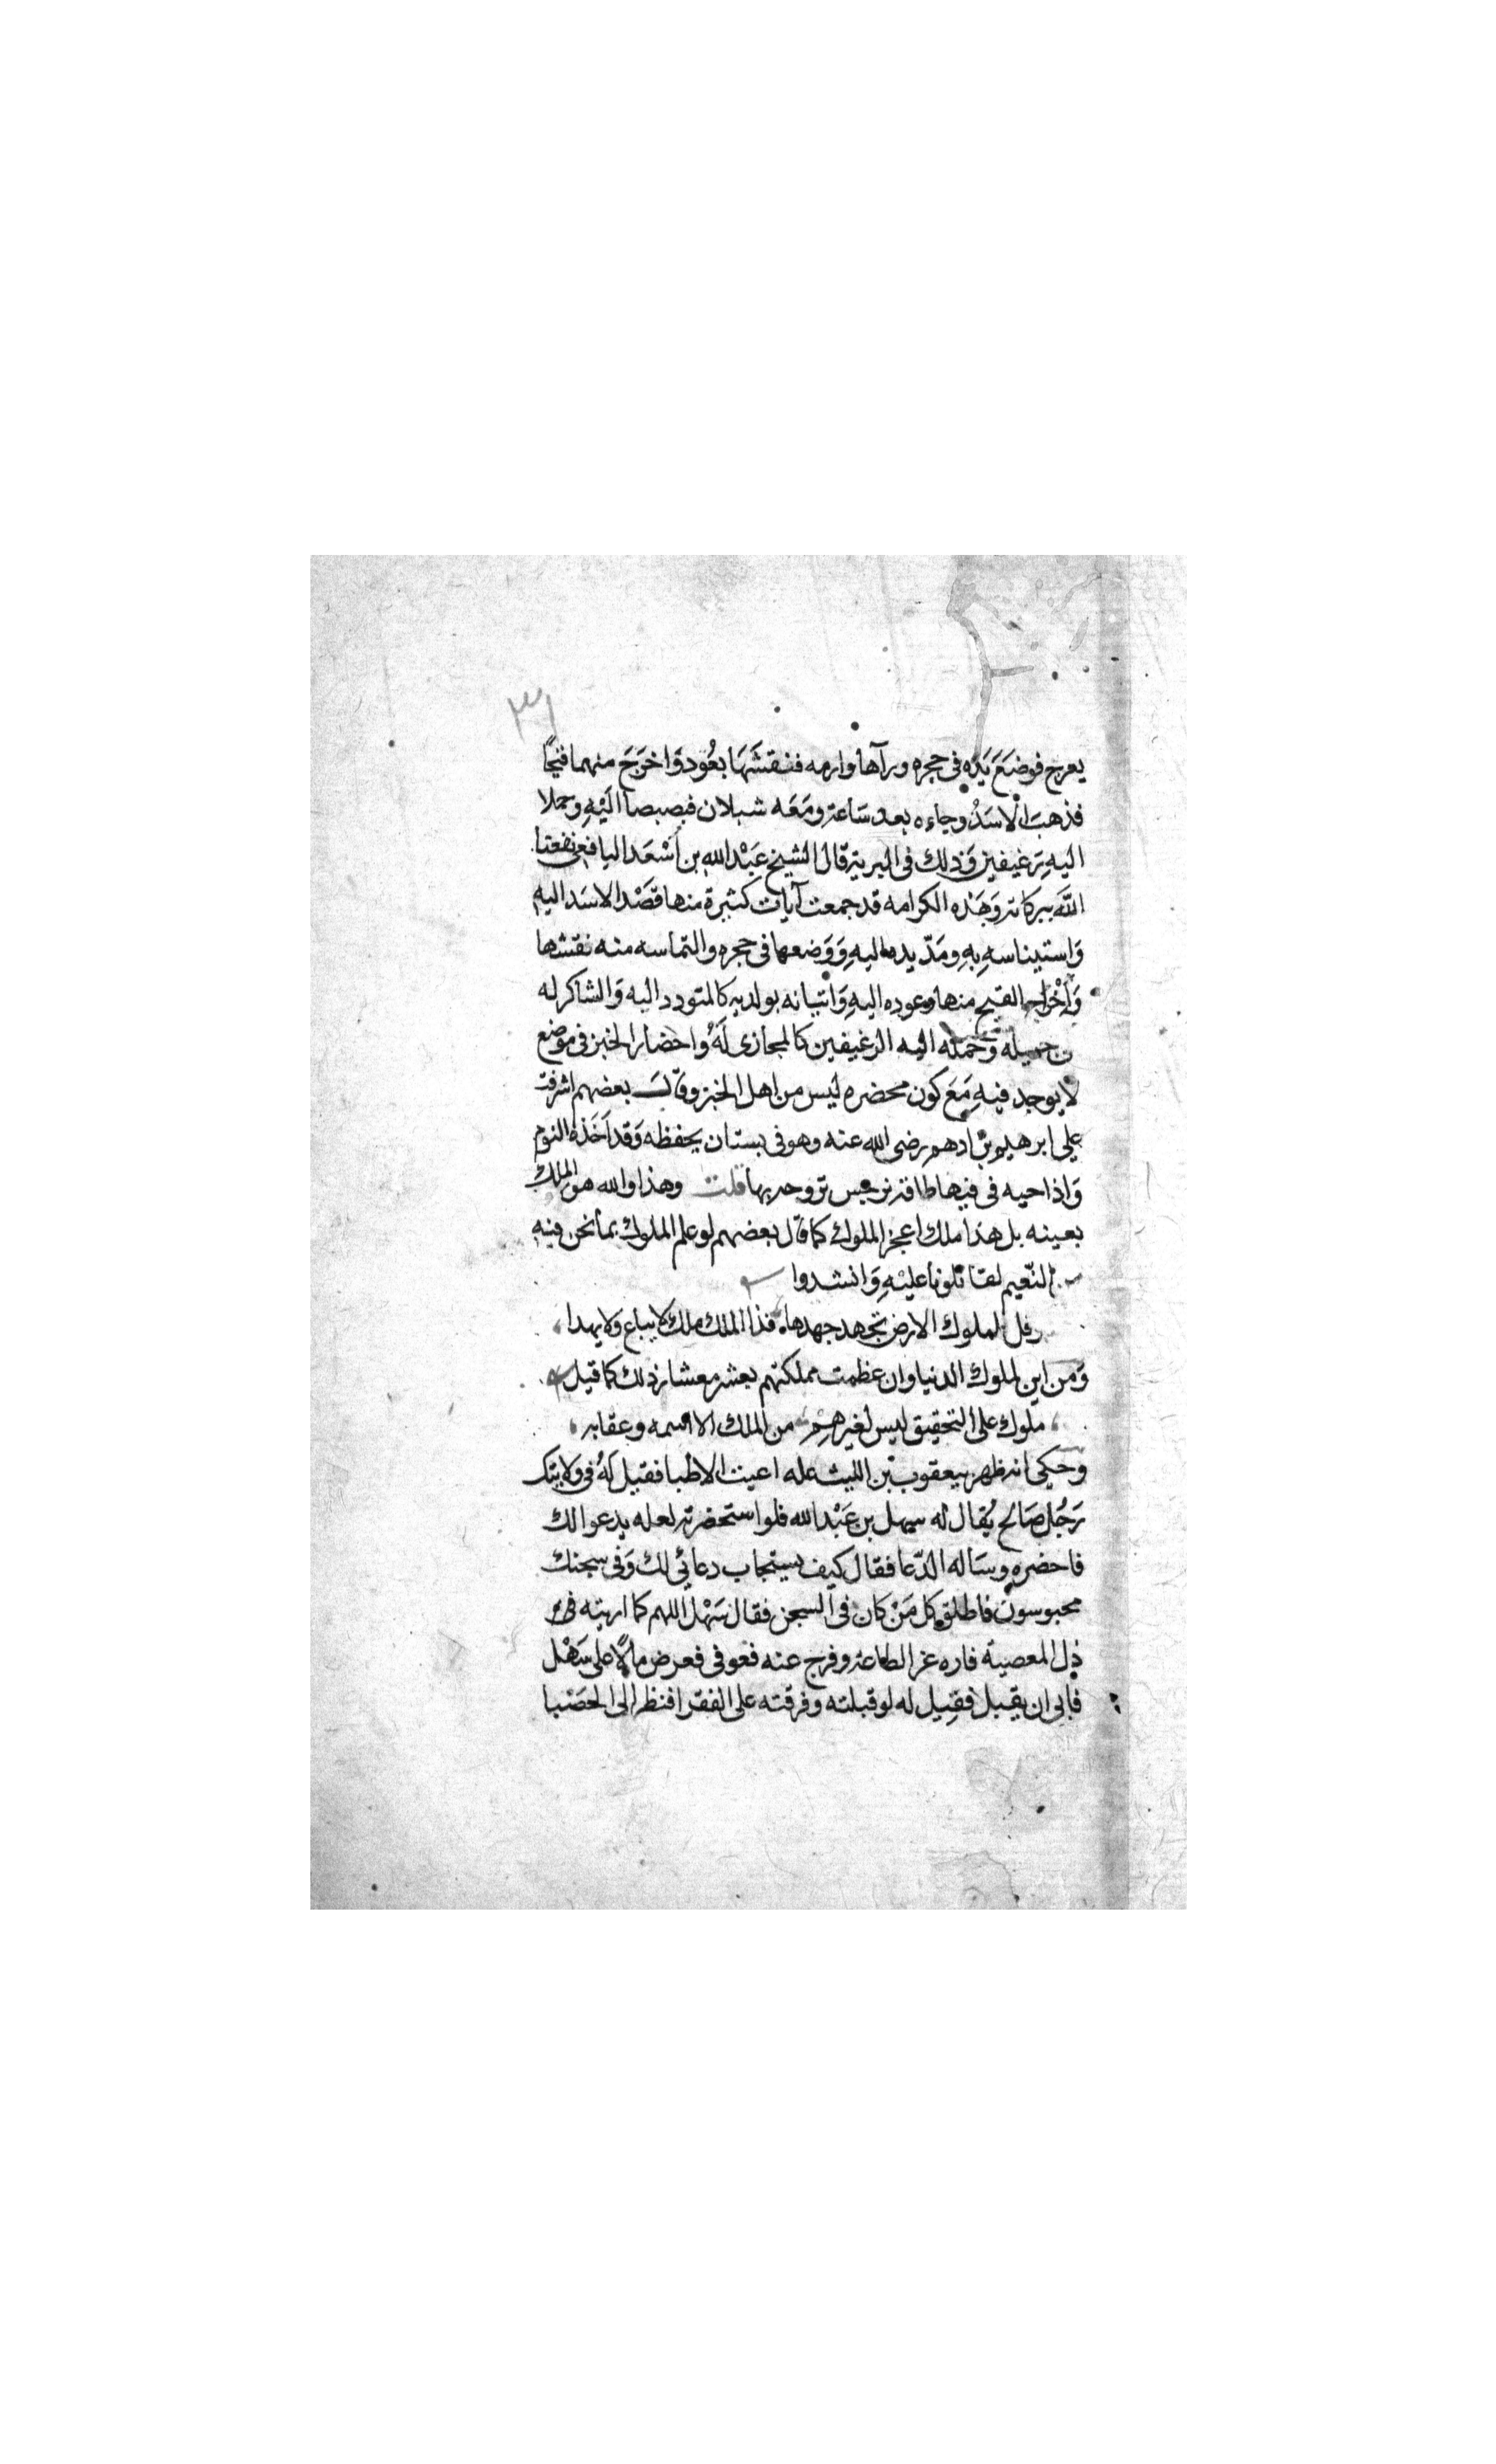 ٣١
يعرج فوضَعَ يَدَه في حجره ورآها وارمه فنقشَهَا بعُود وَاخرَجَ منهما قيحًا
فذهبَ الْاسَدُ وجاءه بعد سَاعة ومَعَه شبلان فبصبصا الَيْهِ وحملا
اليهِ رغيفين وَذلك في البرية قال الشيخ عَبْد الله بن اَسْعَد اليافعي نفعنا
اللَّه ببركاته وَهَذه الكرامه قد جمعت آيات كثيرة منها قصْد الاسَد اليه
وَاستيناسهِ بهِ ومَدّ يده اليهِ وَوَضعها في حجره والتماسه منه نقشها
وَاِخْراج القيح منها وعوده اليهِ وَاتيانه بولديه كالمتودد اليه وَالشاكر له
جميله وَحمله اليه الرغيفين كالمجازى لَهُ واحضار الخبز في موضع
لا يوجد فيهِ مَعَ كون محضره ليس من اهل الخبز وقَالَ بعضهم اشرفت
علي ابرهيم بن ادهم رضى الله عنه وهو في بستان يحفظه وَقد اَخَذه النوم
وَاذا حيه في فيها طاقة نرجس تروحه بها قلت وهذا والله هو الملك
بعينه بل هذا ملك اعجز الملوك كما قال بعضهم لو علم الملوك بما نحن فيه
من النّعيم لقاتلونا عليْهِ وَانشدوا
وقل لملوك الارض تجهد جهدها فذا الملك ملك لا يباع ولا يهدا
وَمن اين لملوك الدنيا وان عظمت مملكتهم بعشر معشار ذلك كما قيل
ملوك على التحقيق ليس لغيرهِمْ من الملك الا اسمه وعقابه
وحكي انه ظهر بيعقوب بن الليث عله اعيت الاطبا فقيل لَهُ في ولايتك
رَجُل صَالح يُقال له سهل بن عَبْد الله فلو استحضرته لعله يدعوا لك
فاحضره وسَاله الدّعا فقال كيف يستجاب دعائي لك وَفي سجنك
محبوسون فاطلق كل مَنْ كان في السجن فقال سَهْل اللهم كما اريته في
ذل المعصية فاره عز الطاعة وفرج عنه فعوفى فعرض مالًا على سَهْل
فابى ان يقبل فقِيل له لو قبلته وفرقته على الفقرا فنظر الى الحصْبا